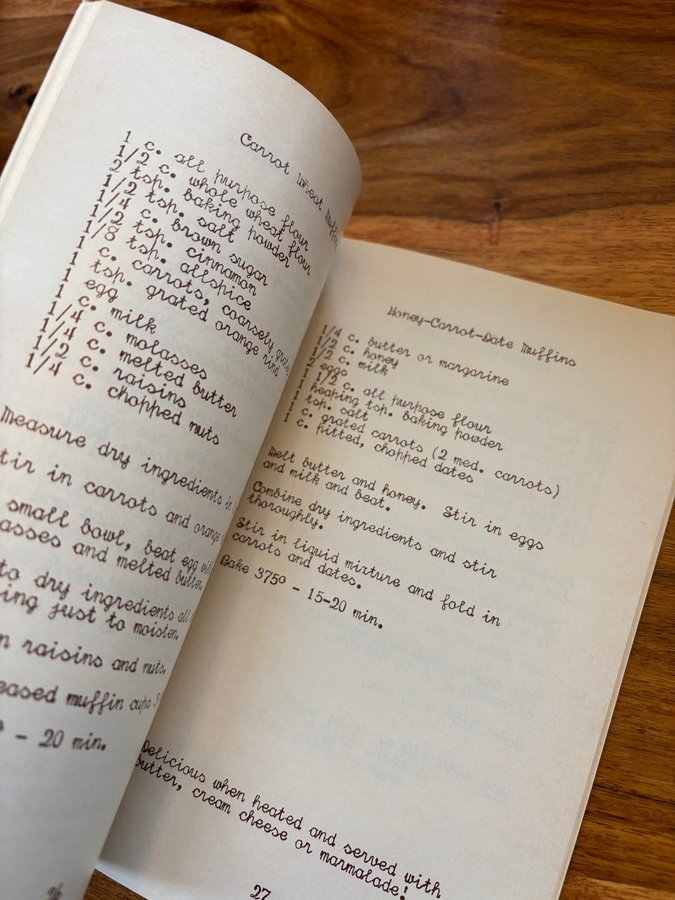 Carrot Wheat
1 c. all purpose flour
1/2 c. whole wheat flour
2 tsp. baking powder
1/2 tsp. salt
1/4 c. brown sugar
1/2 tsp. cinnamon
1/8 tsp. allspice
1 c. carrots, coarsely
1 tsp. grated orange rind
1 egg
1 c. milk
1/4 c. molasses
1/4 c. melted butter
1/2 c. raisins
1/4 c. chopped nuts
Measure dry ingredients
in carrots and orange
small bowl, beat egg
and melted butter.
to dry ingredients all
just to moisten.
raisins and nuts.
muffin cups
- 20 min.
26
Honey-Carrot-Date Muffins
1/4 c. butter or margarine
1/2 c. honey
1/2 c. milk
2 eggs
1 1/2 c. all purpose flour
1 heaping tsp. baking powder
1 tsp. salt
1 c. grated carrots (2 med. carrots)
1 c. pitted, chopped dates
Melt butter and honey. Stir in eggs
and milk and beat.
Combine dry ingredients and stir
thoroughly.
Stir in liquid mixture and fold in
carrots and dates.
Bake 375° - 15-20 min.
Delicious when heated and served with
butter, cream cheese or marmalade!
27